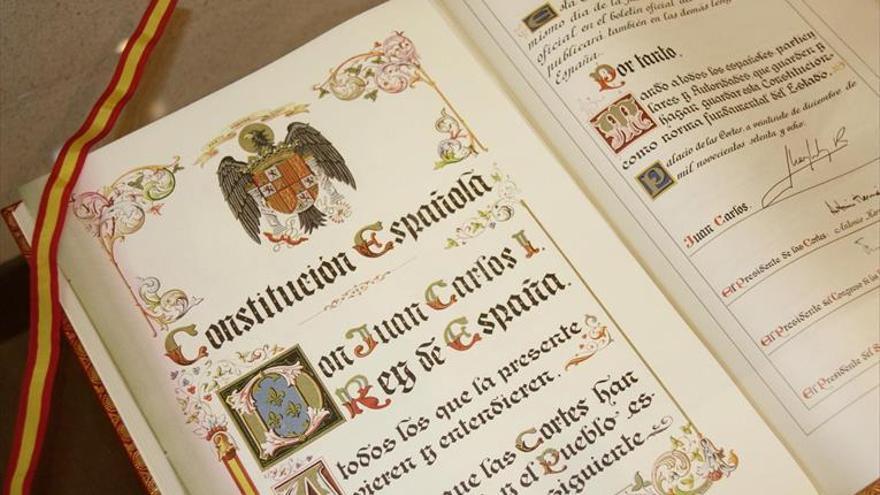 Constitución Española
Don Juan Carlos I.
Rey de España.
A todos los que la presente
vieren y entendieren.
que las Cortes han
y el Pueblo es-
siguiente
mismo día de la
oficial en el boletín oficial de
publicará también en las demás leng
España.
Por tanto.
Mando a todos los españoles particu
lares y Autoridades que guarden y
hagan guardar esta Constitución
como norma fundamental del Estado.
Palacio de las Cortes, a veintisiete de diciembre de
mil novecientos setenta y ocho.
Juan Carlos.
El Presidente de las Cortes.
El Presidente del Congreso de los
El Presidente del Se